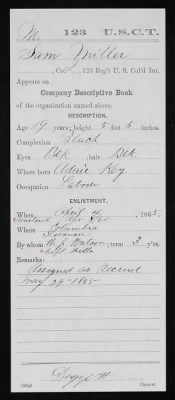 M. 123 U.S.C.T.
Sam Miller
, Co. , 123 Reg't U. S. Col'd Inf.
Appears on
Company Descriptive Book
of the organization named above.
DESCRIPTION.
Age 19 years; height 5 feet 5 inches.
Complexion Black
Eyes Blk ; hair Blk
Where born Adair Ky
Occupation Laborer
ENLISTMENT.
When , 1865.
Where Columbia
Lebanon
By whom W. J. Watson ; term 3 y'rs.
Remarks:
Assigned as Recruit
May 29 - 1865
Copyist.